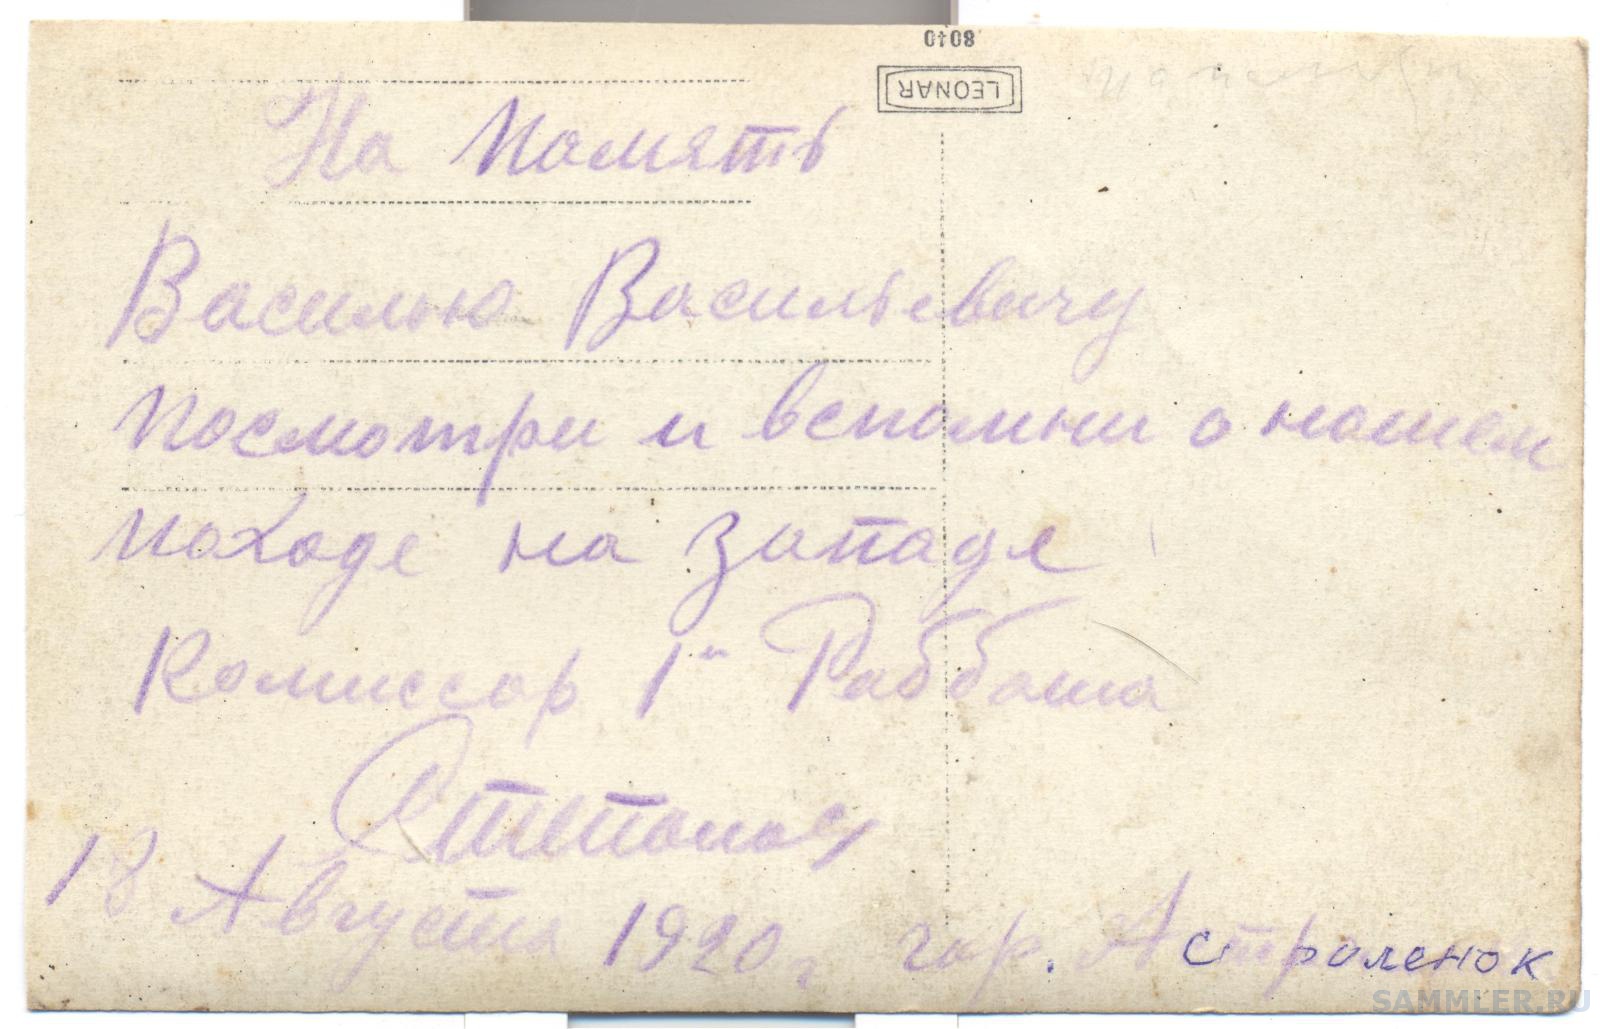 8040
LEONAR
На память
Василью Васильевичу
посмотри и вспомни о нашем
походе на западе
Комиссар 1го Раббата
Степанов
18 Августа 1920 г. гор. Астроленок
SAMMLER.RU